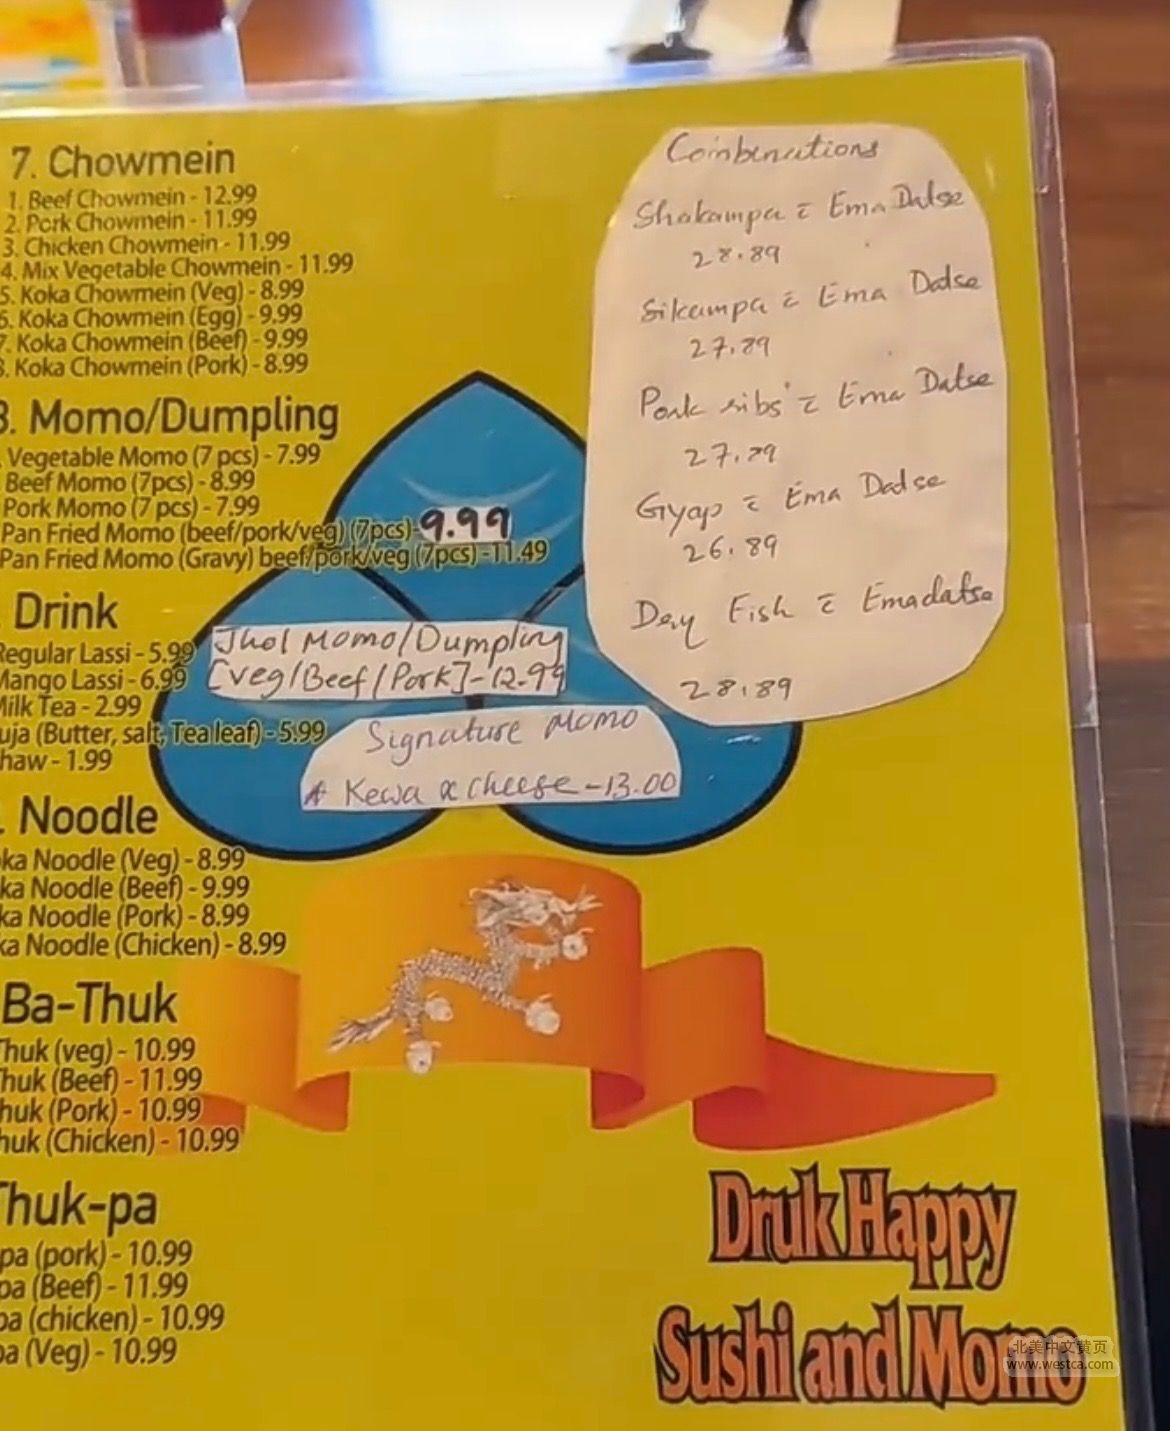 7. Chowmein
1. Beef Chowmein - 12.99
2. Pork Chowmein - 11.99
3. Chicken Chowmein - 11.99
4. Mix Vegetable Chowmein - 11.99
5. Koka Chowmein (Veg) - 8.99
6. Koka Chowmein (Egg) - 9.99
7. Koka Chowmein (Beef) - 9.99
8. Koka Chowmein (Pork) - 8.99
8. Momo/Dumpling
Vegetable Momo (7 pcs) - 7.99
Beef Momo (7pcs) - 8.99
Pork Momo (7 pcs) - 7.99
Pan Fried Momo (beef/pork/veg) (7pcs)-9.99
Pan Fried Momo (Gravy) beef/pork/veg (7pcs) -11.49
Jhol Momo/Dumpling
[veg/Beef/Pork]-12.99
Signature Momo
Kewa & Cheese -13.00
Drink
Regular Lassi - 5.99
Mango Lassi - 6.99
Milk Tea - 2.99
uja (Butter, salt, Tea leaf) - 5.99
haw - 1.99
Noodle
ka Noodle (Veg) - 8.99
ka Noodle (Beef) - 9.99
ka Noodle (Pork) - 8.99
ka Noodle (Chicken) - 8.99
Ba-Thuk
Thuk (veg) - 10.99
Thuk (Beef) - 11.99
huk (Pork) - 10.99
huk (Chicken) - 10.99
Thuk-pa
pa (pork) - 10.99
pa (Beef) - 11.99
pa (chicken) - 10.99
pa (Veg) - 10.99
Combinations
Shakampa c̄ Ema Datse
28.89
Sikampa c̄ Ema Datse
27.89
Pork ribs c̄ Ema Datse
27.89
Gyap c̄ Ema Datse
26.89
Dry Fish c̄ Emadatse
28.89
Druk Happy
Sushi and Momo
北美中文黄页
www.westca.com